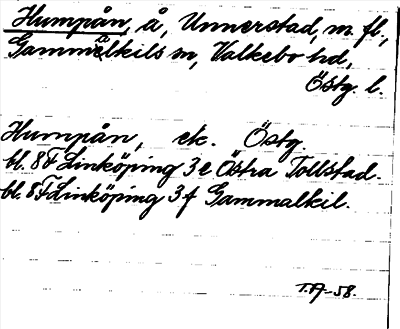 Humpån, å, Unnerstad, m. fl.,
Gammalkils sn, Valkebo hd,
Östg. l.
Humpån, ek. Östg.
bl. 8F Linköping 3e Östra Tollstad.
bl. 8F Linköping 3f Gammalkil.
T.A-58.